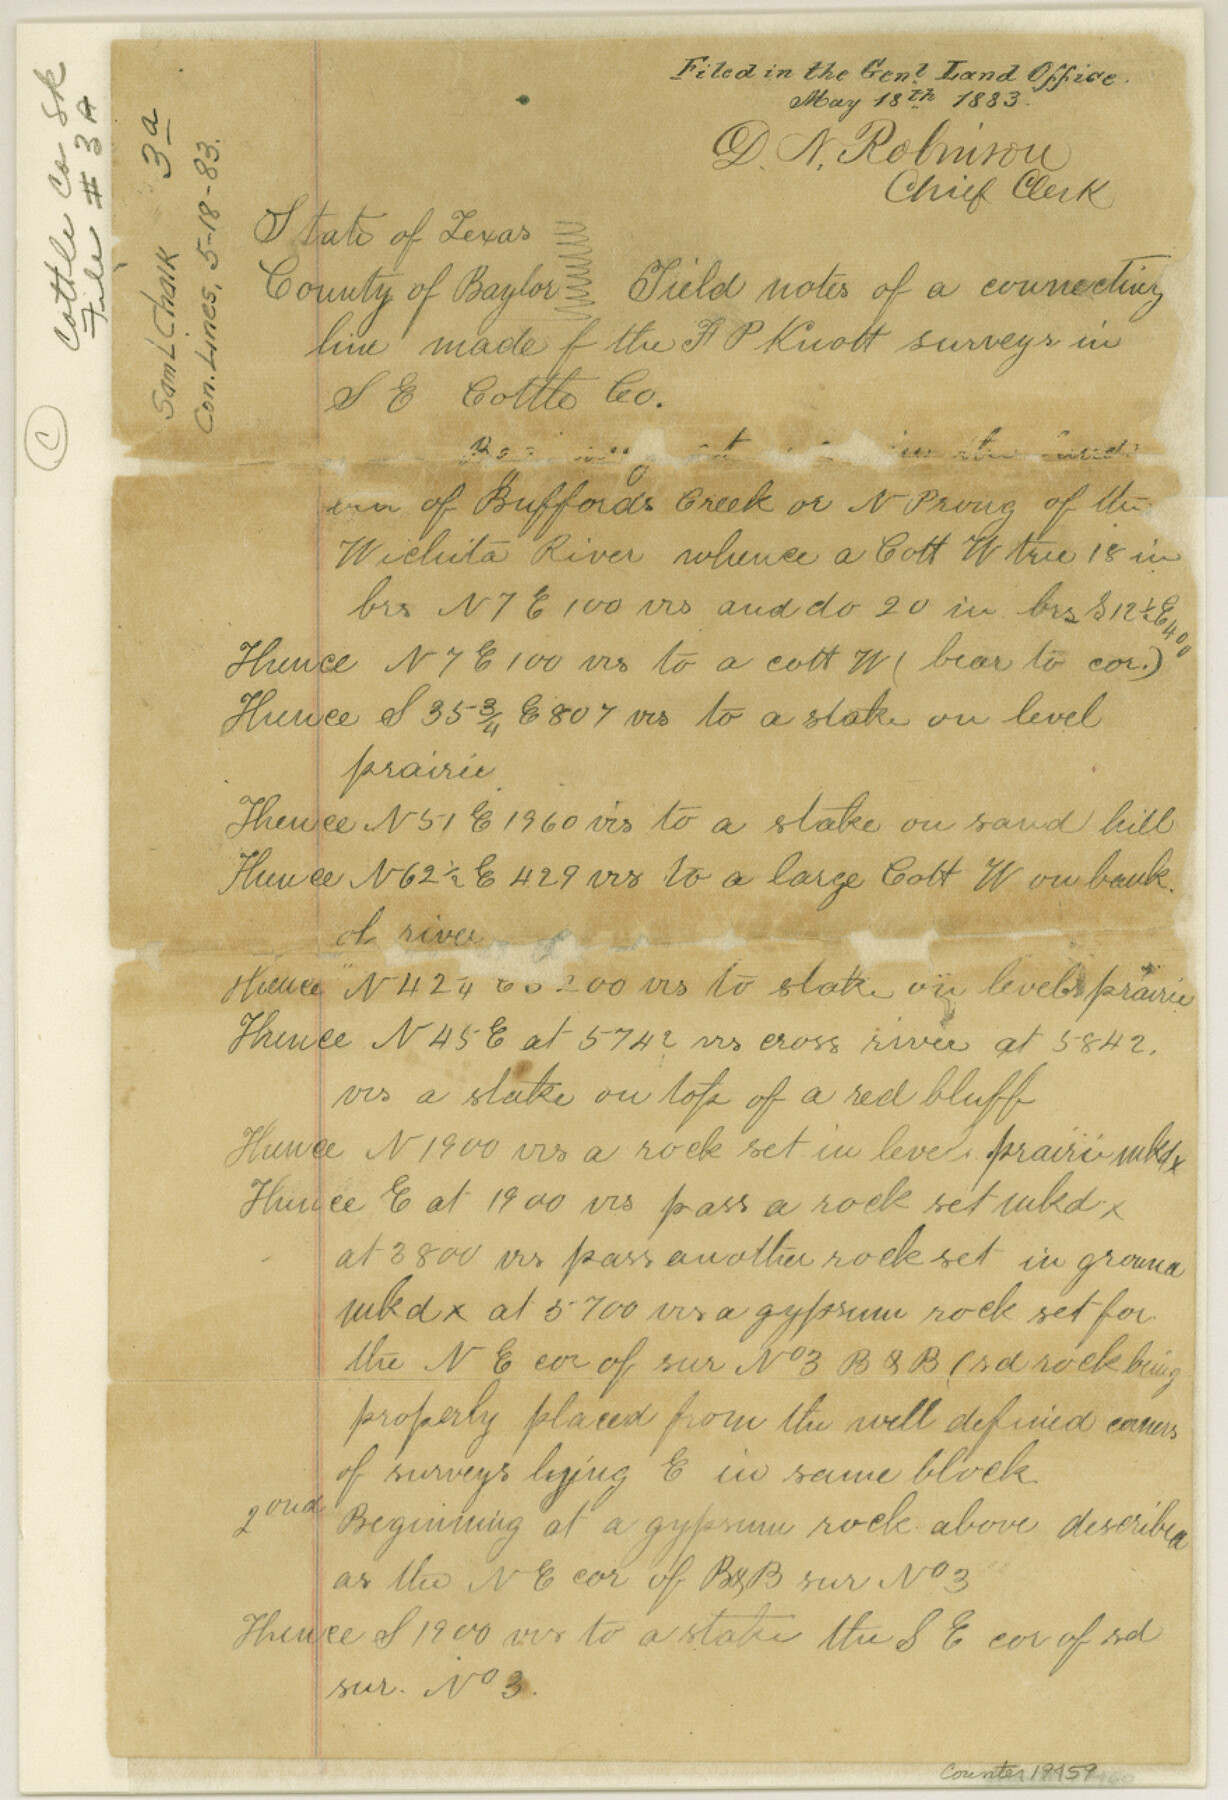 Cottle Co Sk
File # 3A
C
Sam L Chalk 3a
Con. Lines, 5-18-83.
Filed in the Genl Land Office.
May 18th 1883.
D. N. Robinson
Chief Clerk
State of Texas
County of Baylor Field notes of a connecting
line made f the F P Knott surveys in
S E Cottle Co.
Beginning at in the
of Buffords Creek or N Prong of the
Wichita River whence a Cott W tree 18 in
brs N 7 E 100 vrs and do 20 in brs S 12½ E 400
Thence N 7 E 100 vrs to a cott W ( bear to cor.)
Thence S 35 3/4 E 807 vrs to a stake on level
prairie
Thence N 51 E 1960 vrs to a stake on sand hill
Thence N 62 ½ E 429 vrs to a large Cott W on bank
of river
Thence N 42 E 200 vrs to stake on level prairie
Thence N 45 E at 5742 vrs cross river at 5842.
vrs a stake on top of a red bluff
Thence N 1900 vrs a rock set in level prairie mkd x
Thence E at 1900 vrs pass a rock set mkd x
at 3800 vrs pass another rock set in ground
mkd x at 5700 vrs a gypsum rock set for
the N E cor of sur No 3 B & B (sd rock being
properly placed from the well defined corners
of surveys lying E in same block
2ond Beginning at a gypsum rock above described
as the N E cor of B&B sur No 3
Thence S 1900 vrs to a stake the S E cor of sd
sur. No 3.
Counter 19459